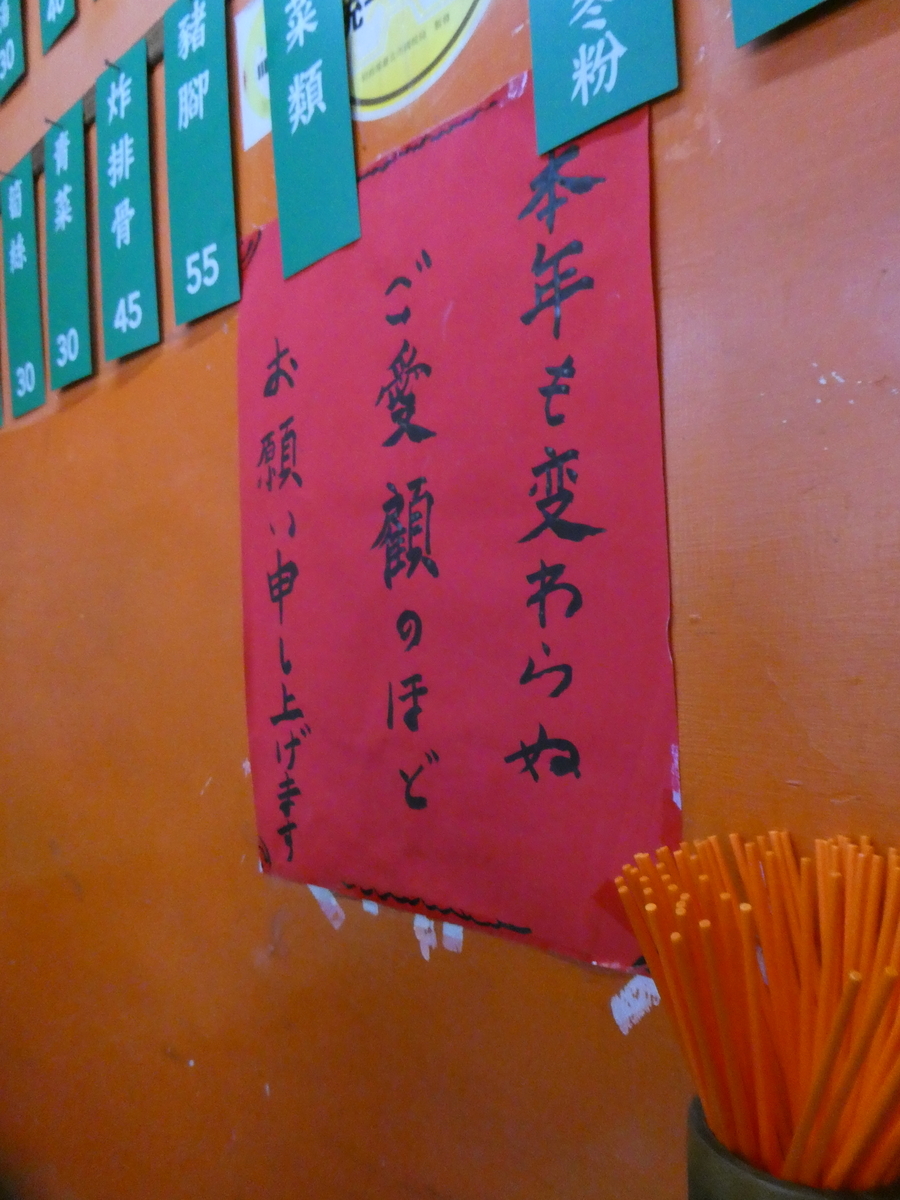 本年も変わらぬ
ご愛顧のほど
お願い申し上げます
冬粉
菜類
豬腳 55
炸排骨 45
青菜 30
筍絲 30
30